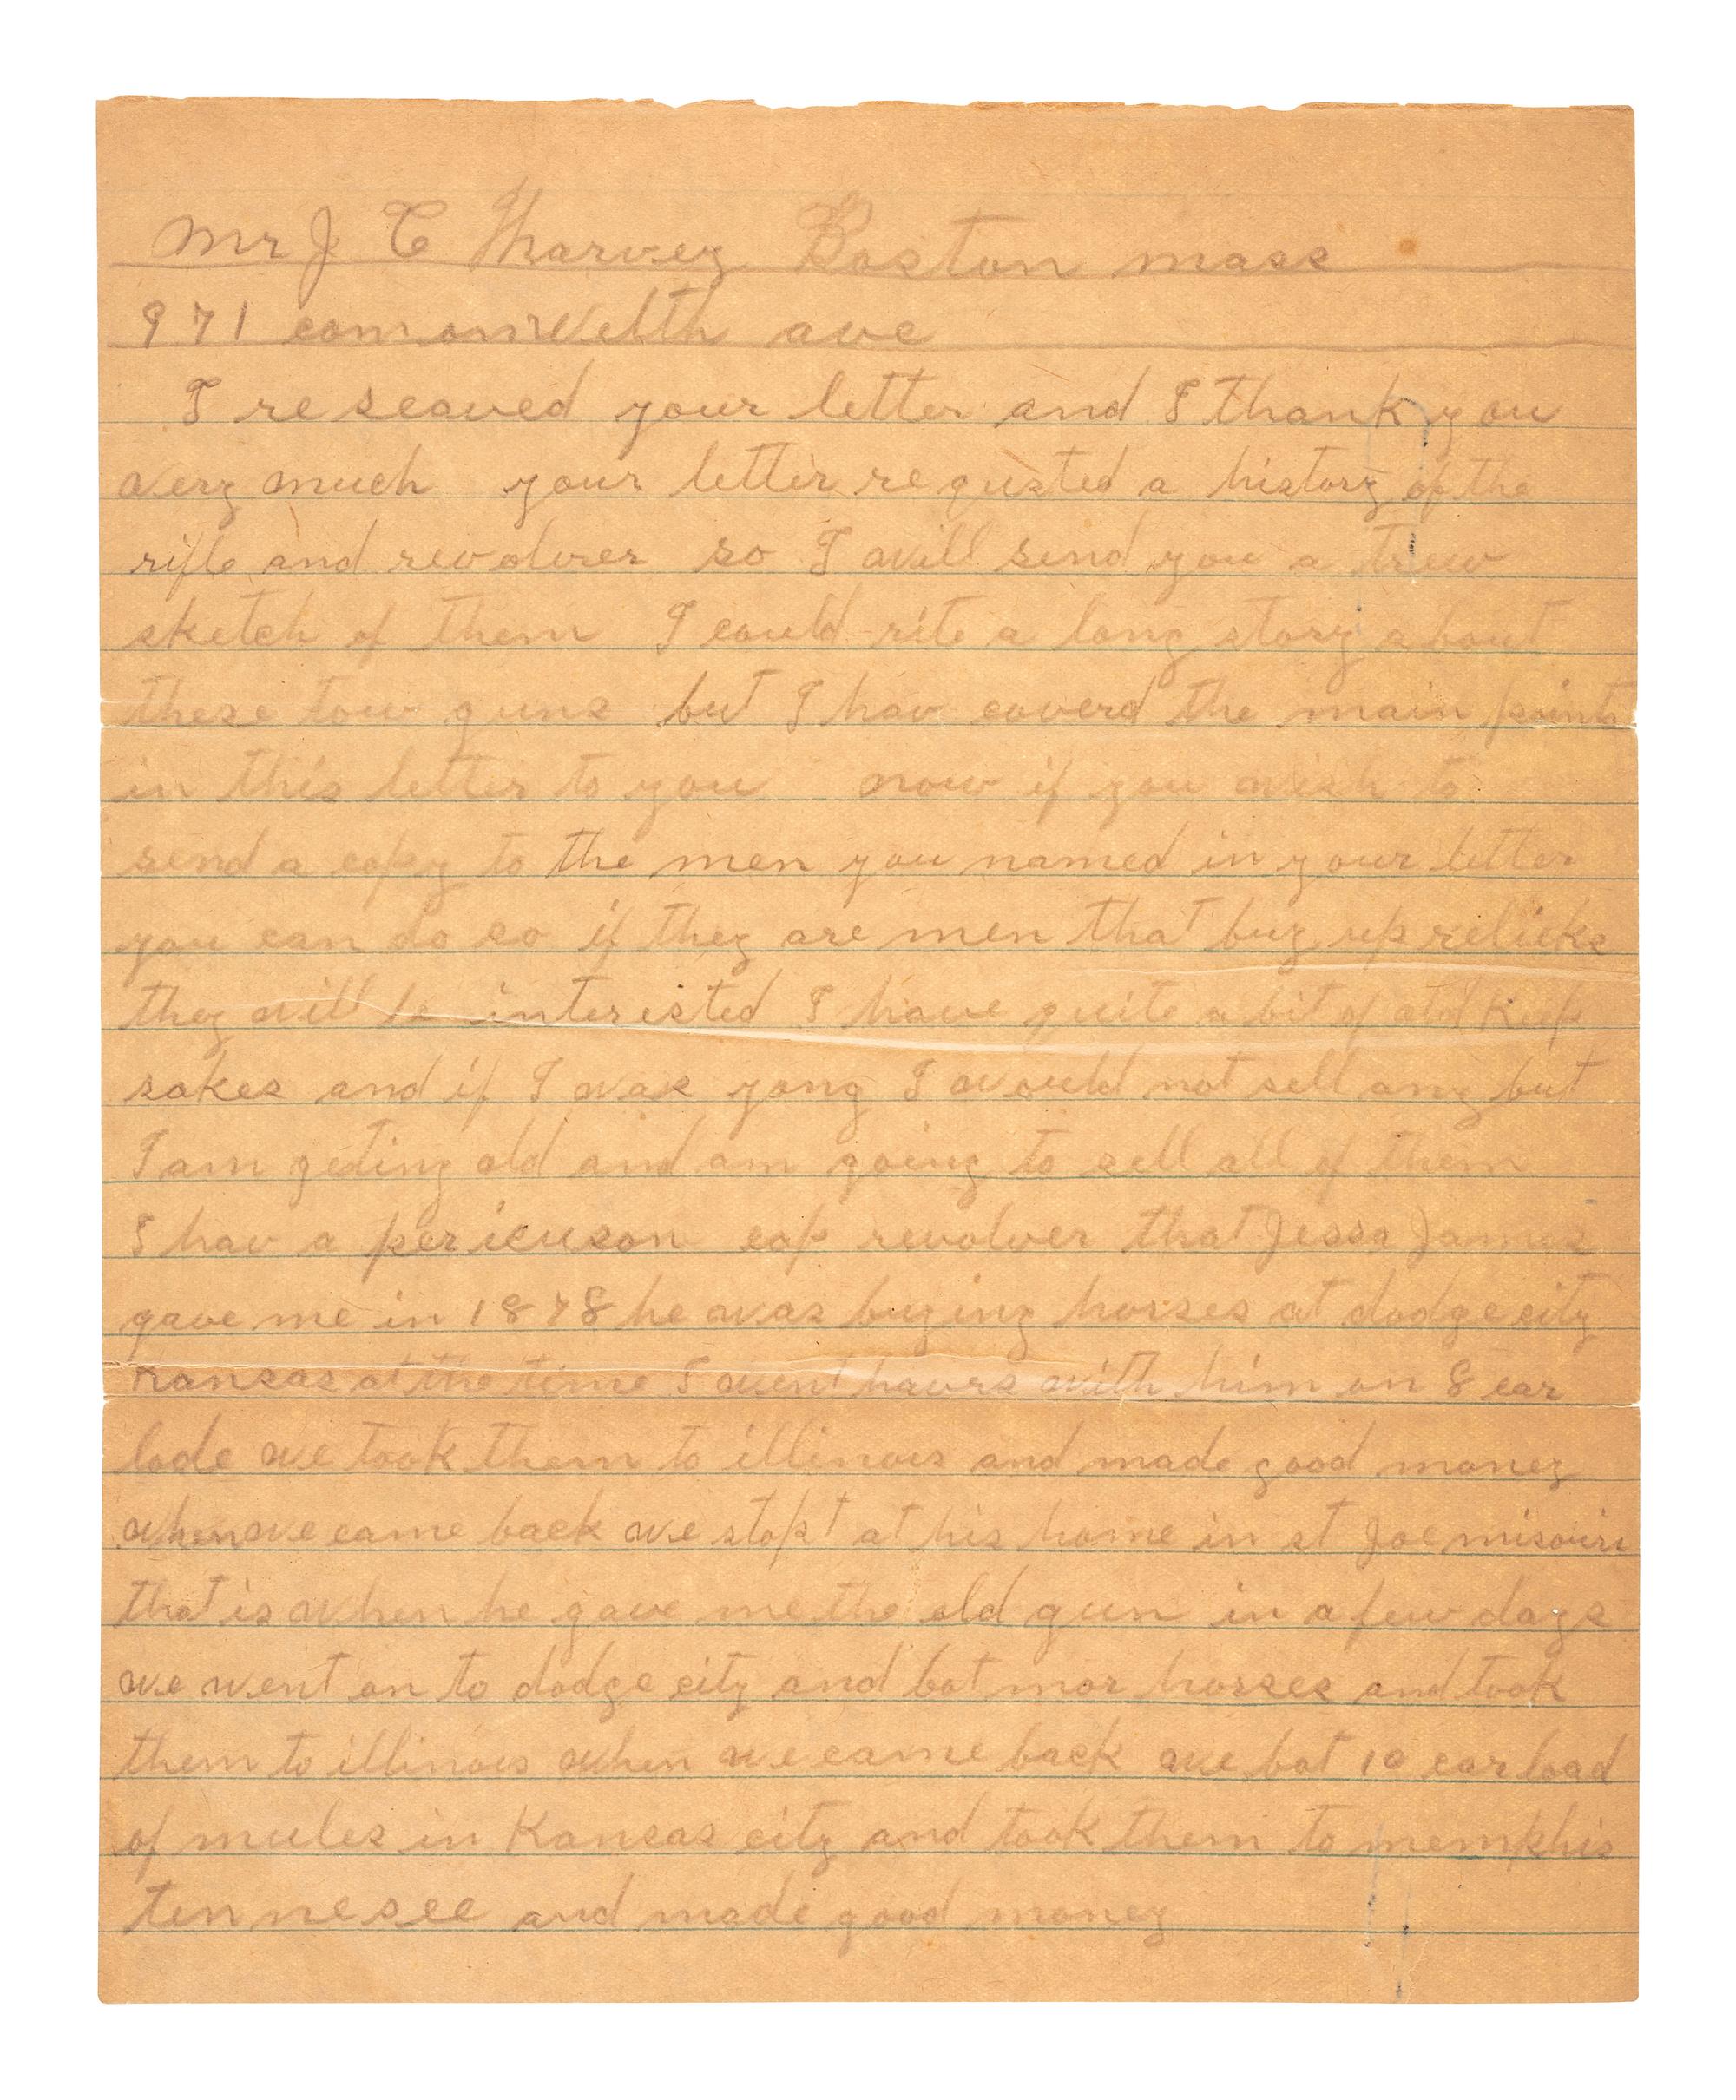 Mr J C Harvey Boston mass
971 comonwelth ave
I reseaved your letter and I thank you
very much your letter requsted a history of the
rifle and revolver so I will send you a trew
sketch of them I could rite a long story about
these tow guns but I hav coverd the main points
in this letter to you now if you wish to
send a copy to the men you named in your letter
you can do so if they are men that buy up relicks
they will be interested I have quite a bit of old Keep
sakes and if I was yong I would not sell any but
I am geting old and am going to sell all of them
I hav a pericuson cap revolver that Jessa James
gave me in 1878 he was buying horses at dodge city
Kansas at the time I went havrs with him on 8 car
lode we took them to illinois and made good money
when we came back we stopt at his home in st Joe misouri
that is when he gave me the old gun in a few days
we went on to dodge city and bot mor horses and took
them to illinois when we came back we bot 10 car load
of mules in Kansas city and took them to memphis
tennesee and made good money